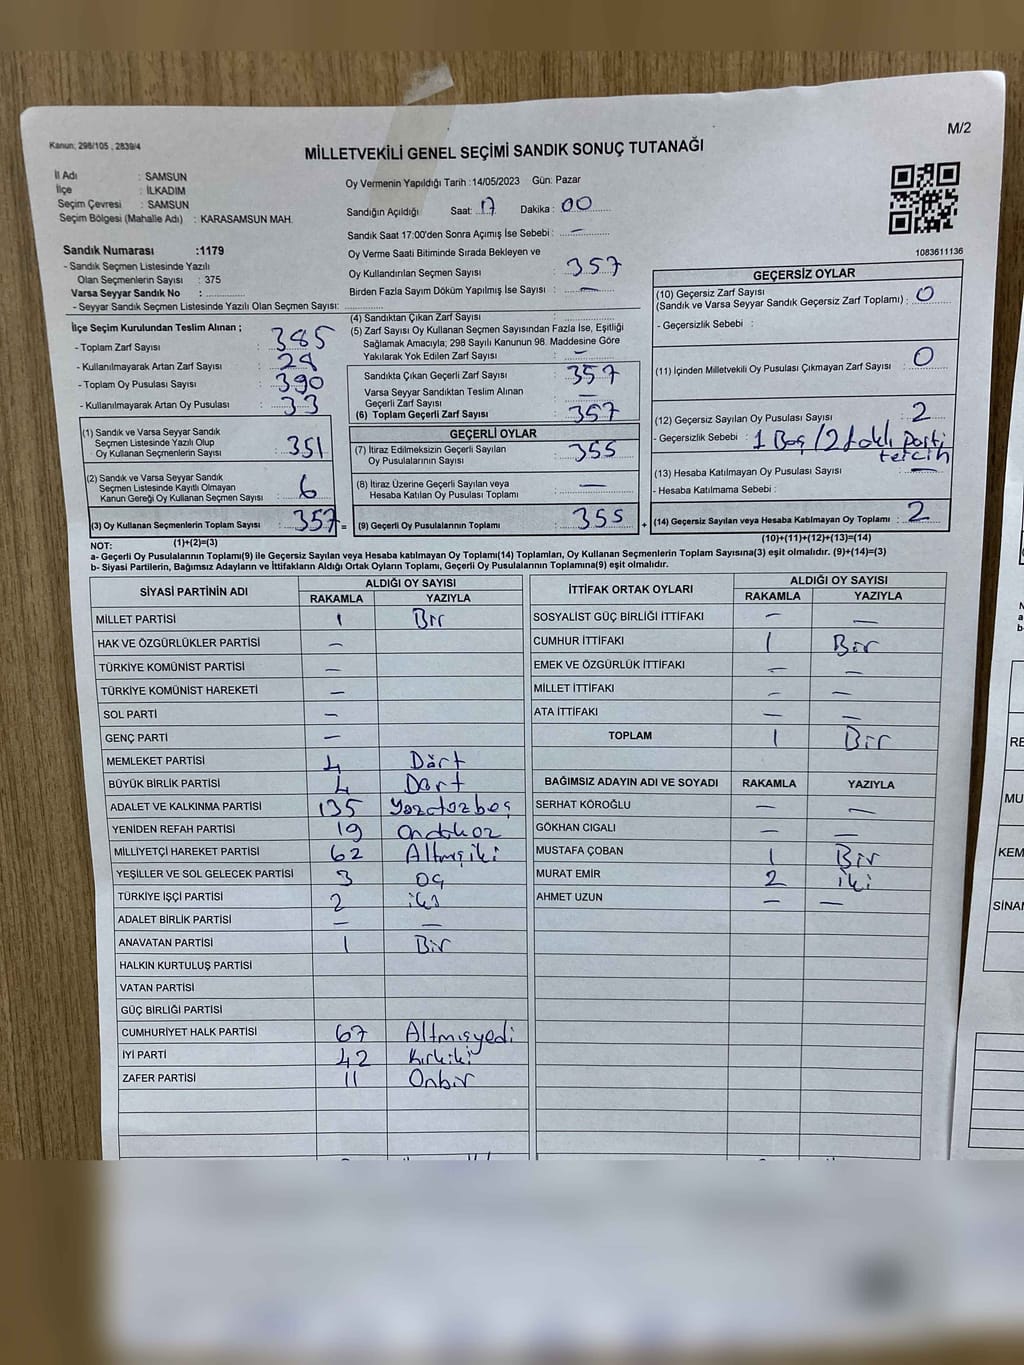 M/2
Kanun; 298/105 , 2839/4
MİLLETVEKİLİ GENEL SEÇİMİ SANDIK SONUÇ TUTANAĞI
İl Adı : SAMSUN
İlçe : İLKADIM
Seçim Çevresi : SAMSUN
Seçim Bölgesi (Mahalle Adı) : KARASAMSUN MAH.
Oy Vermenin Yapıldığı Tarih :14/05/2023 Gün: Pazar
Sandığın Açıldığı Saat: 17 Dakika : 00
Sandık Saat 17:00'den Sonra Açımış İse Sebebi : —
Sandık Numarası :1179
- Sandık Seçmen Listesinde Yazılı
Olan Seçmenlerin Sayısı : 375
Varsa Seyyar Sandık No :
- Seyyar Sandık Seçmen Listesinde Yazılı Olan Seçmen Sayısı:
Oy Verme Saati Bitiminde Sırada Bekleyen ve
Oy Kullandırılan Seçmen Sayısı : 357
Birden Fazla Sayım Döküm Yapılmış İse Sayısı : —
1083611136
İlçe Seçim Kurulundan Teslim Alınan ;
- Toplam Zarf Sayısı : 385
- Kullanılmayarak Artan Zarf Sayısı : 28
- Toplam Oy Pusulası Sayısı : 390
- Kullanılmayarak Artan Oy Pusulası : 33
(1) Sandık ve Varsa Seyyar Sandık
Seçmen Listesinde Yazılı Olup
Oy Kullanan Seçmenlerin Sayısı : 351
(2) Sandık ve Varsa Seyyar Sandık
Seçmen Listesinde Kayıtlı Olmayan
Kanun Gereği Oy Kullanan Seçmen Sayısı : 6
(3) Oy Kullanan Seçmenlerin Toplam Sayısı : 357 =
(1)+(2)=(3)
(4) Sandıktan Çıkan Zarf Sayısı :
(5) Zarf Sayısı Oy Kullanan Seçmen Sayısından Fazla İse, Eşitliği
Sağlamak Amacıyla; 298 Sayılı Kanunun 98. Maddesine Göre
Yakılarak Yok Edilen Zarf Sayısı : —
Sandıkta Çıkan Geçerli Zarf Sayısı : 357
Varsa Seyyar Sandıktan Teslim Alınan
Geçerli Zarf Sayısı : —
(6) Toplam Geçerli Zarf Sayısı : 357
GEÇERLİ OYLAR
(7) İtiraz Edilmeksizin Geçerli Sayılan
Oy Pusulalarının Sayısı : 355
(8) İtiraz Üzerine Geçerli Sayılan veya
Hesaba Katılan Oy Pusulası Toplamı : —
(9) Geçerli Oy Pusulalarının Toplamı : 355 +
GEÇERSİZ OYLAR
(10) Geçersiz Zarf Sayısı
(Sandık ve Varsa Seyyar Sandık Geçersiz Zarf Toplamı) : 0
- Geçersizlik Sebebi :
(11) İçinden Milletvekili Oy Pusulası Çıkmayan Zarf Sayısı : 0
(12) Geçersiz Sayılan Oy Pusulası Sayısı : 2
- Geçersizlik Sebebi : 1 Boş / 2 farklı parti
tercih
(13) Hesaba Katılmayan Oy Pusulası Sayısı : —
- Hesaba Katılmama Sebebi :
(14) Geçersiz Sayılan veya Hesaba Katılmayan Oy Toplamı : 2
(10)+(11)+(12)+(13)=(14)
NOT:
a- Geçerli Oy Pusulalarının Toplamı(9) ile Geçersiz Sayılan veya Hesaba katılmayan Oy Toplamı(14) Toplamları, Oy Kullanan Seçmenlerin Toplam Sayısına(3) eşit olmalıdır. (9)+(14)=(3)
b- Siyasi Partilerin, Bağımsız Adayların ve İttifakların Aldığı Ortak Oyların Toplamı, Geçerli Oy Pusulalarının Toplamına(9) eşit olmalıdır.
SİYASİ PARTİNİN ADI ALDIĞI OY SAYISI
RAKAMLA YAZIYLA
MİLLET PARTİSİ 1 Bir
HAK VE ÖZGÜRLÜKLER PARTİSİ —
TÜRKİYE KOMÜNİST PARTİSİ —
TÜRKİYE KOMÜNİST HAREKETİ —
SOL PARTİ —
GENÇ PARTİ —
MEMLEKET PARTİSİ 4 Dört
BÜYÜK BİRLİK PARTİSİ 4 Dört
ADALET VE KALKINMA PARTİSİ 135 Yüzotuzbeş
YENİDEN REFAH PARTİSİ 19 Ondokuz
MİLLİYETÇİ HAREKET PARTİSİ 62 Altmışiki
YEŞİLLER VE SOL GELECEK PARTİSİ 3 Üç
TÜRKİYE İŞÇİ PARTİSİ 2 iki
ADALET BİRLİK PARTİSİ — —
ANAVATAN PARTİSİ 1 Bir
HALKIN KURTULUŞ PARTİSİ
VATAN PARTİSİ
GÜÇ BİRLİĞİ PARTİSİ
CUMHURİYET HALK PARTİSİ 67 Altmışyedi
İYİ PARTİ 42 Kırkiki
ZAFER PARTİSİ 11 Onbir
İTTİFAK ORTAK OYLARI ALDIĞI OY SAYISI
RAKAMLA YAZIYLA
SOSYALİST GÜÇ BİRLİĞİ İTTİFAKI — —
CUMHUR İTTİFAKI 1 Bir
EMEK VE ÖZGÜRLÜK İTTİFAKI — —
MİLLET İTTİFAKI — —
ATA İTTİFAKI — —
TOPLAM 1 Bir
BAĞIMSIZ ADAYIN ADI VE SOYADI RAKAMLA YAZIYLA
SERHAT KÖROĞLU — —
GÖKHAN CIGALI — —
MUSTAFA ÇOBAN 1 Bir
MURAT EMİR 2 iki
AHMET UZUN — —
N
a
b-
RE
MU
KEM
SİNAN